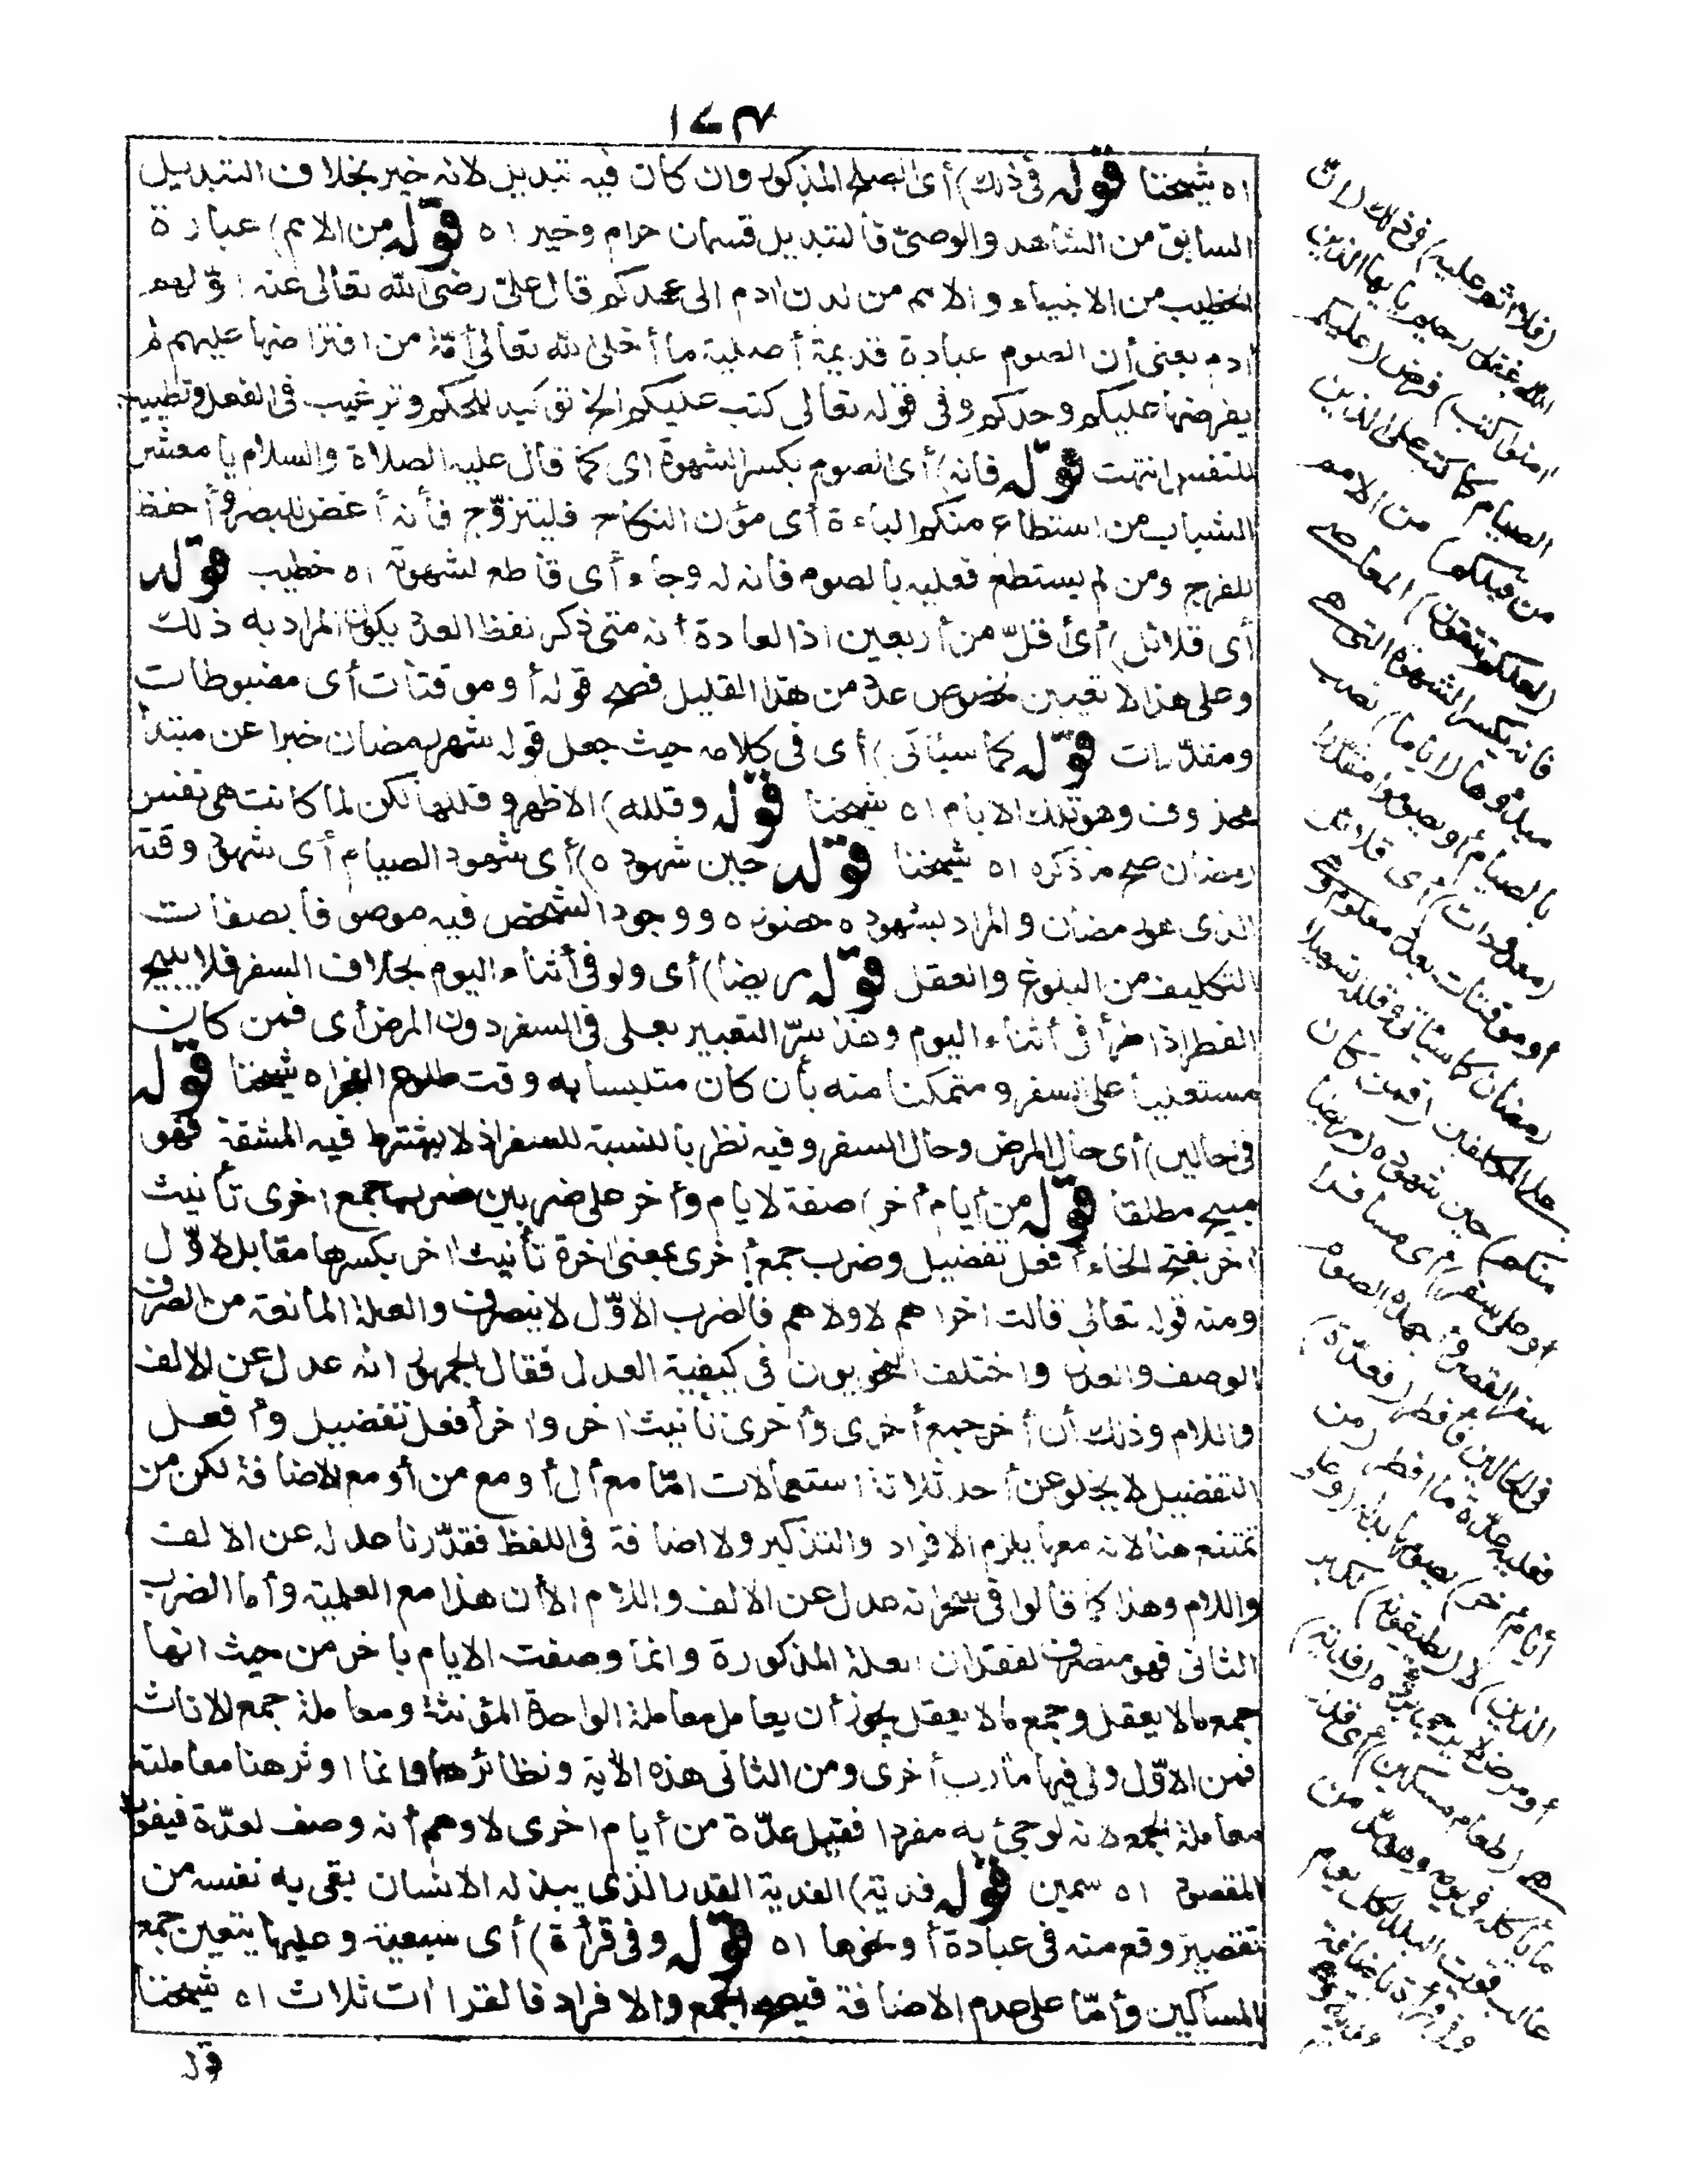 ١٤٣
اه شيخنا قوله في ذلك) أى الصلح المذكور وان كان فيه تبديل لانه خير بخلاف التبديل
السابق من الشاهد والوصىّ فالتبديل قسمان حرام وخير اه قوله من الامم) عبارة
الخطيب من الانبياء والامم من لدن ادم الى عهدكم قال علىّ رضى الله تعالى عنه اوّلهم
أدم يعنى أن الصوم عبادة قديمة أصلية ما أخلى الله تعالى أمّة من افتراضها عليهم لم
يفرضها عليكم وحدكم وفى قوله تعالى كتب عليكم الخ توكيد للحكم وترغيب فى الفعل وتطييب
للنفس انتهت قوله فانه) أى الصوم يكسر الشهوة اى كما قال عليه الصلاة والسلام يا معشر
الشباب من استطاع منكم الباءة أى مؤن النكاح فليتزوّج فأنه أغض للبصر وأحفظ
للفرج ومن لم يستطع فعليه بالصوم فانه له وجاء أى قاطع لشهوته اه خطيب قوله
أى قلائل) أى أقلّ من أربعين اذ العادة أنه متى ذكر لفظ العدد يكون المراد به ذلك
وعلى هذا لا تعيين لخصوص عدد من هذا القليل فصح قوله أو موقتات أى مضبوطات
ومقدّرات قوله كما سيأتى) أى فى كلامه حيث جعل قوله شهر رمضان خبرا عن مبتدأ
محذوف وهو تلك الايام اه شيخنا قوله وقلله) الاظهر وقللها لكن لما كانت هى نفس
رمضان صح مذكره اه شيخنا قوله حين شهوده) أى شهود الصيام أى شهود وقته
الذى هو رمضان والمراد بشهوده حضوره ووجود الشخص فيه موصوفا بصفات
التكليف من البلوغ والعقل قوله مريضا) أى ولو فى أثناء اليوم بخلاف السفر فلا يبيح
الفطر اذا طرأ فى أثناء اليوم وهذا سرّ التعبير بعلى فى السفر دون المرض أى فمن كان
مستعليا على السفر ومتمكنا منه بأن كان متلبسا به وقت طلوع الفجر اه شيخنا قوله
فى حالين) أى حال المرض وحال السفر وفيه نظر بالنسبة للسفر اذ لا يشترط فيه المشقة فهو
مبيح مطلقا قوله من أيام أخر) صفة لايام وأخر على ضربين ضرب جمع اخرى تأنيث
اخر بفتح الخاء أفعل تفضيل وضرب جمع أخرى بمعنى اخرة تأنيث اخر بكسرها مقابل لاوّل
ومنه قوله تعالى قالت اخراهم لاولاهم فالضرب الاوّل لا ينصرف والعلة المانعة من الصرف
الوصف والعدل واختلف النحويون فى كيفية العدل فقال الجمهور انه عدل عن الالف
واللام وذلك أن أخر جمع أخرى وأخرى تأنيث اخر واخر أفعل تفضيل وأفعل
التفضيل لا يخلو عن أحد ثلاثة استعمالات امّا مع أل أو مع من أو مع الاضافة لكن من
تمتنع هنا لانه معها يلزم الافراد والتذكير ولا اضافة فى اللفظ فقدّرنا عدله عن الالف
واللام وهذا كما قالوا فى سحر انه عدل عن الالف واللام الا أن هذا مع العلمية وأما الضرب
الثانى فهو منصرف لفقدان العلة المذكورة وانما وصفت الايام بأخر من حيث انها
جمع ما لا يعقل وجمع ما لا يعقل يجوز أن يعامل معاملة الواحدة المؤنثة ومعاملة جمع الاناث
فمن الاوّل ولى فيها مأرب أخرى ومن الثانى هذه الأية ونظائرها وانما اوثر هنا معاملته
معاملة الجمع لانه لو جئ به مفردا فقيل عدّة من أيام اخرى لاوهم أنه وصف لعدّة فيفوت
المقصود اه سمين قوله فدية) الفدية القدر الذى يبذله الانسان يقى به نفسه من
تقصير وقع منه فى عبادة أو نحوها اه قوله وفى قرأة) أى سبعية وعليها يتعين جمع
المساكين وأمّا على عدم الاضافة فيصح الجمع والافراد فالقراات ثلاث اه شيخنا
قوله
(فلا اثم عليه) فى ذلك (انّ
الله غفور رحيم يا يها الذين
امنوا كتب) فرض (عليكم
الصيام كما كتب على الذين
من قبلكم) من الامم
(لعلكم تتقون) المعاصى
فانه يكسر الشهوة التى هى
مبدؤها (اياما) نصب
بالصيام أو بصوموا مقدّرا
(معدودات) أى قلائل
أو موقتات بعدد معلوم وهى
رمضان كما سيأتى وقلله تسهيلا
على المكلفين (فمن كان
منكم) حين شهوده (مريضا
أو على سفر) أى مسافرا
سفر القصر وأجهده الصوم
فى الحالين فأفطر (فعدّة)
فعليه عدّة ما افطر (من
أيام أخر) يصومها بدله (وعلى
الذين) لا (يطيقونه) لكبر
أو مرض لا يرجى برؤه (فدية)
هى (طعام مسكين) أى قدر
ما يأكله فى يومه وهو مدّ من
غالب قوت البلد لكل يوم
وفى قرأة باضافة
فدية وهى